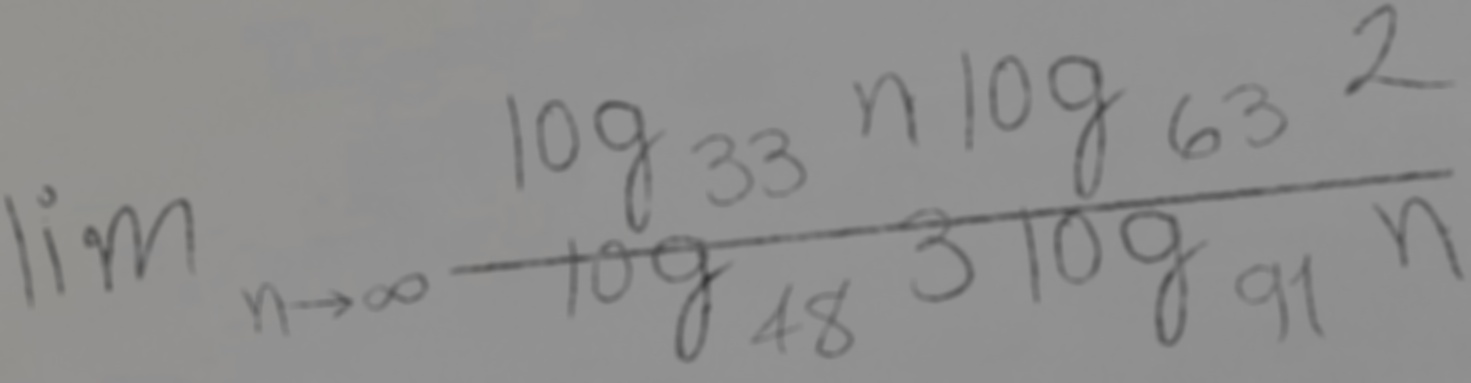 lim n→∞ \frac{log_{33} n log_{63} 2}{log_{48} 3 log_{91} n}